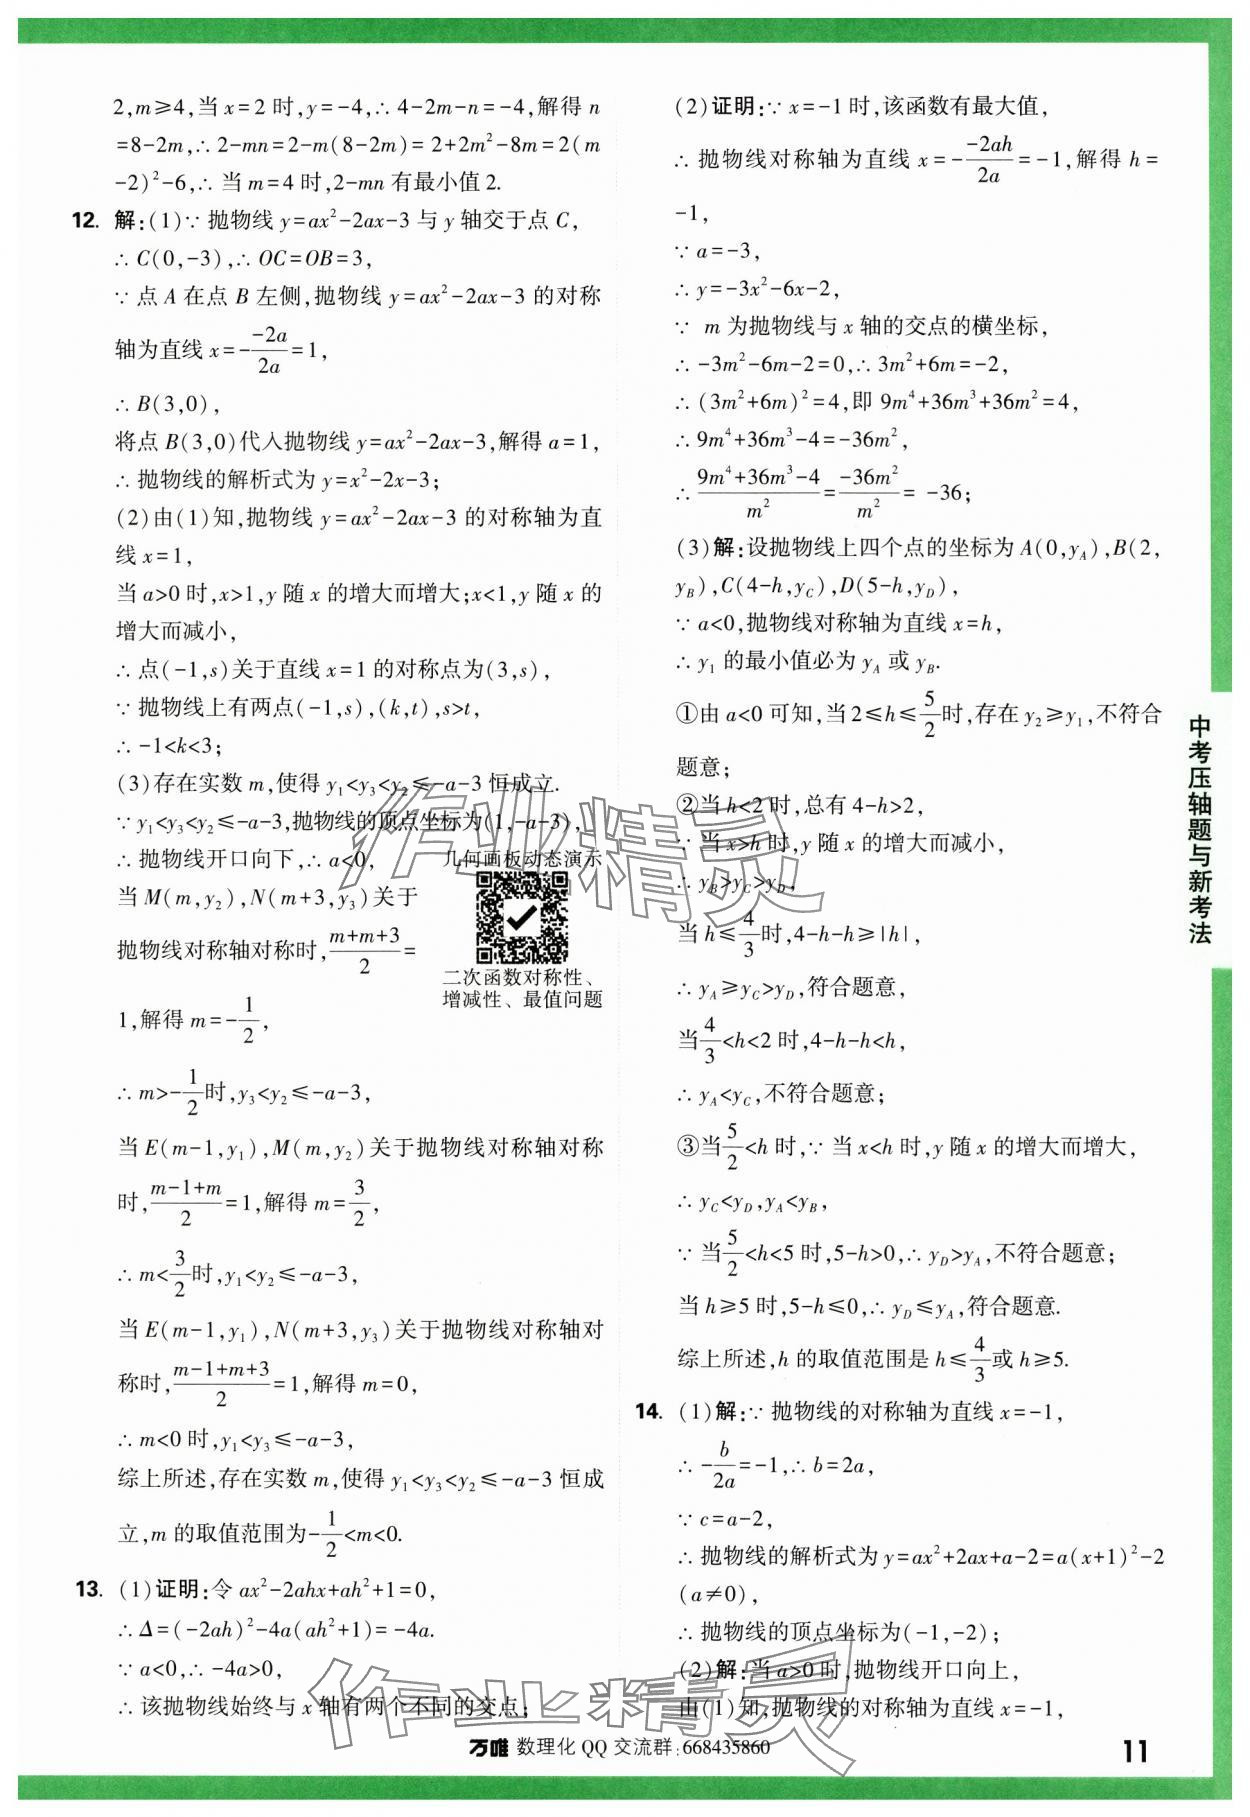 2,m≥4,当x=2时,y=-4,∴4-2m-n=-4,解得n
=8-2m,∴2-mn=2-m(8-2m)=2+2m²-8m=2(m
-2)²-6,∴当m=4时,2-mn有最小值2.
12. 解:(1)∵抛物线y=ax²-2ax-3与y轴交于点C,
∴C(0,-3),∴OC=OB=3,
∵点A在点B左侧,抛物线y=ax²-2ax-3的对称
轴为直线x=-\frac{-2a}{2a}=1,
∴B(3,0),
将点B(3,0)代入抛物线y=ax²-2ax-3,解得a=1,
∴抛物线的解析式为y=x²-2x-3;
(2)由(1)知,抛物线y=ax²-2ax-3的对称轴为直
线x=1,
当a>0时,x>1,y随x的增大而增大;x<1,y随x的
增大而减小,
∴点(-1,s)关于直线x=1的对称点为(3,s),
∵抛物线上有两点(-1,s),(k,t),s>t,
∴-1<k<3;
(3)存在实数m,使得y₁<y₃<y₂≤-a-3恒成立.
∵y₁<y₃<y₂≤-a-3,抛物线的顶点坐标为(1,-a-3),
∴抛物线开口向下,∴a<0,
当M(m,y₂),N(m+3,y₃)关于
抛物线对称轴对称时,\frac{m+m+3}{2}=
1,解得m=-\frac{1}{2},
几何画板动态演示
二次函数对称性、
增减性、最值问题
∴m>-\frac{1}{2}时,y₃<y₂≤-a-3,
当E(m-1,y₁),M(m,y₂)关于抛物线对称轴对称
时,\frac{m-1+m}{2}=1,解得m=\frac{3}{2},
∴m<\frac{3}{2}时,y₁<y₂≤-a-3,
当E(m-1,y₁),N(m+3,y₃)关于抛物线对称轴对
称时,\frac{m-1+m+3}{2}=1,解得m=0,
∴m<0时,y₁<y₃≤-a-3,
综上所述,存在实数m,使得y₁<y₃<y₂≤-a-3恒成
立,m的取值范围为-\frac{1}{2}<m<0.
13. (1)证明:令ax²-2ahx+ah²+1=0,
∴Δ=(-2ah)²-4a(ah²+1)=-4a.
∵a<0,∴-4a>0,
∴该抛物线始终与x轴有两个不同的交点;
(2)证明:∵x=-1时,该函数有最大值,
∴抛物线对称轴为直线x=-\frac{-2ah}{2a}=-1,解得h=
-1,
∵a=-3,
∴y=-3x²-6x-2,
∵m为抛物线与x轴的交点的横坐标,
∴-3m²-6m-2=0,∴3m²+6m=-2,
∴(3m²+6m)²=4,即9m⁴+36m³+36m²=4,
∴9m⁴+36m³-4=-36m²,
∴\frac{9m⁴+36m³-4}{m²}=\frac{-36m²}{m²}=-36;
(3)解:设抛物线上四个点的坐标为A(0,y_A),B(2,
y_B),C(4-h,y_C),D(5-h,y_D),
∵a<0,抛物线对称轴为直线x=h,
∴y₁的最小值必为y_A或y_B.
①由a<0可知,当2≤h≤\frac{5}{2}时,存在y₂≥y₁,不符合
题意;
②当h<2时,总有4-h>2,
∵当x>h时,y随x的增大而减小,
∴y_B>y_C>y_D,
当h≤\frac{4}{3}时,4-h-h≥|h|,
∴y_A≥y_C>y_D,符合题意,
当\frac{4}{3}<h<2时,4-h-h<h,
∴y_A<y_C,不符合题意;
③当\frac{5}{2}<h时,∵当x<h时,y随x的增大而增大,
∴y_C<y_D,y_A<y_B,
∵当\frac{5}{2}<h<5时,5-h>0,∴y_D>y_A,不符合题意;
当h≥5时,5-h≤0,∴y_D≤y_A,符合题意.
综上所述,h的取值范围是h≤\frac{4}{3}或h≥5.
14. (1)解:∵抛物线的对称轴为直线x=-1,
∴-\frac{b}{2a}=-1,∴b=2a,
∵c=a-2,
∴抛物线的解析式为y=ax²+2ax+a-2=a(x+1)²-2
(a≠0),
∴抛物线的顶点坐标为(-1,-2);
(2)解:当a>0时,抛物线开口向上,
由(1)知,抛物线的对称轴为直线x=-1,
中考压轴题与新考法
作业精灵
作业精灵
万唯 数理化QQ交流群:668435860
11